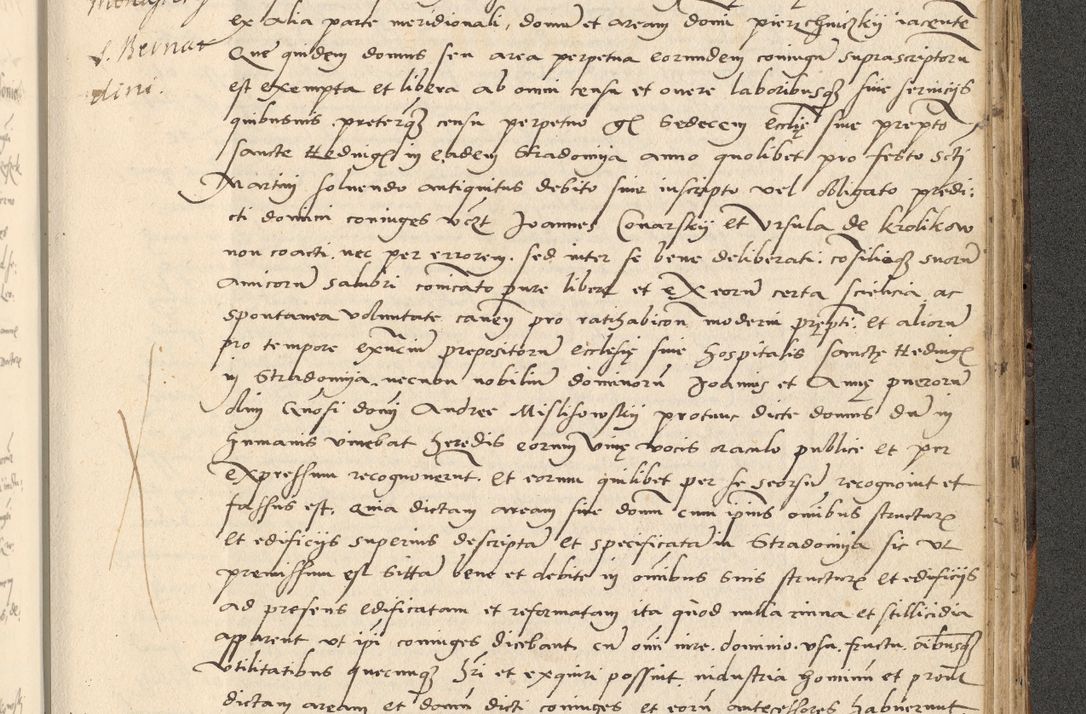 S. Bernar
dini.
ex alia parte meridionali, domu et aream domi pierzchnizkij iacente
Que quidem domus seu area perpetua eorundem coniugu suprascriptoru
est exempta et libera ab omni censu et onere laboribusq sive servicijs
quibusvis preterq censu perpetuo gl Sedecem Ecclie sive prepto
sancte Hedvigis in eadem Stradomija anno quolibet pro festo scti
Martini solvendo antiquitus debito sive inscripto vel obligato predi:
cti domini coniuges vczt Joannes Conarskij et Ursula de Krolikow
non coacti, nec per errorem, sed inter se bene deliberati, cosilioq suoru
amicoru salubri comunicato pure libere et ex eoru certa sciencia ac
spontanea voluntate caven pro ratihabicon moderni prepti et alioru
pro tempore existen prepositoru Ecclesie sive hospitalis sancte Hedvigis
in Stradomija, necnon nobiliu dominoru Joannis et Anne pueroru
olim Gnosi domi Andree Mislisowskij protunc dicte domus du in
humanis vivebat heredis eorum vive vocis oraculo publice et per
expressum recognoverut. Et eorum quilibet per se seorsu recognovit et
fassus est. Quia dictam aream sive domu cum ipius omibus structuris
et edificijs superius descripta et specificata in Stradomija sic ut
premissum est sitta bene et debite in omibus suis structuris et edificijs
ad presens edificatam et reformatam ita quod nulla rinna et stillicidia
apparent ut ipi coniuges dicebant cu omi iure, dominio, usu, fructu, oibusq
utilitatibus quecunq hri et exquiri possint industria hominu et prout
dictam aream et domu dicti coniuges et eoru antecessores habuerunt